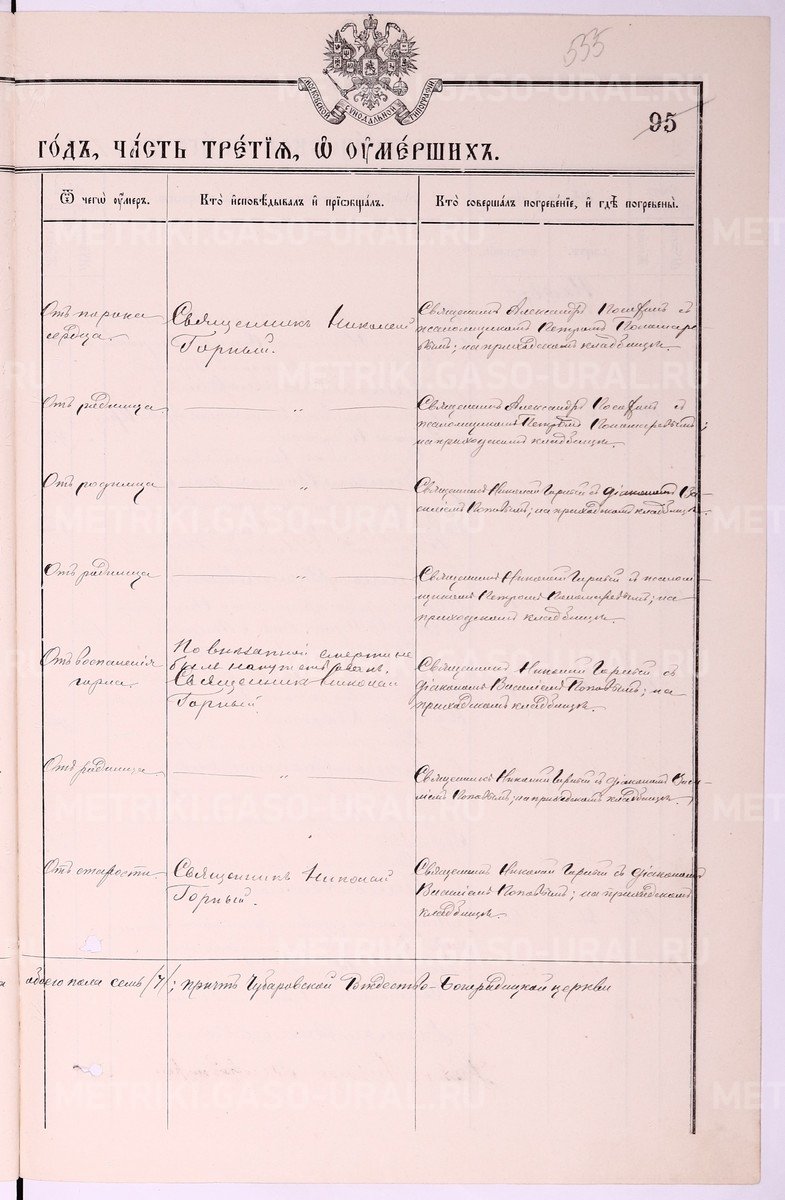 555
МОСКОВСКОЙ СѴНОДАЛЬНОЙ ТИПОГРАФІИ
95
ГО́ДЪ, ЧА́СТЬ ТРЕ́ТІѦ, Ѽ ОУ҆МЕ́РШИХЪ.
Ѿ чегѡ̀ оу҆́меръ.
Кто̀ и҆сповѣ́дывалъ и҆ прїѡбща́лъ.
Кто̀ соверша́лъ погребе́нїе, и҆ гдѣ̀ погребены̀.
Отъ порока
сердца.
Священникъ Николай
Горный.
Священникъ Александръ с
псаломщикомъ Петромъ Пономаре-
вымъ; на приходскомъ кладбищѣ.
Отъ родимца
— „ —
Священникъ Александръ с
псаломщикомъ Петромъ Пономаревымъ;
на приходскомъ кладбищѣ.
Отъ родимца
— „ —
Священникъ Николай Горный с діакономъ Ва-
силіемъ Поповымъ; на приходскомъ кладбищѣ.
Отъ родимца
— „ —
Священникъ Николай Горный с псалом-
щикомъ Петромъ Пономаревымъ; на
приходскомъ кладбищѣ.
Отъ воспаленія
горла.
По внезапной смерти не
былъ напутствованъ.
Священникъ Николай
Горный.
Священникъ Николай Горный с
діакономъ Василіемъ Поповымъ; на
приходскомъ кладбищѣ.
Отъ родимца
— „ —
Священникъ Николай Горный с діакономъ Васи-
ліемъ Поповымъ; на приходскомъ кладбищѣ.
Отъ старости
Священникъ Николай
Горный.
Священникъ Николай Горный с діакономъ
Василіемъ Поповымъ; на приходскомъ
кладбищѣ.
обоего пола семь /7/; причтъ Чубаровской Рождество-Богородицкой церкви
METRIKI.GASO-URAL.RU